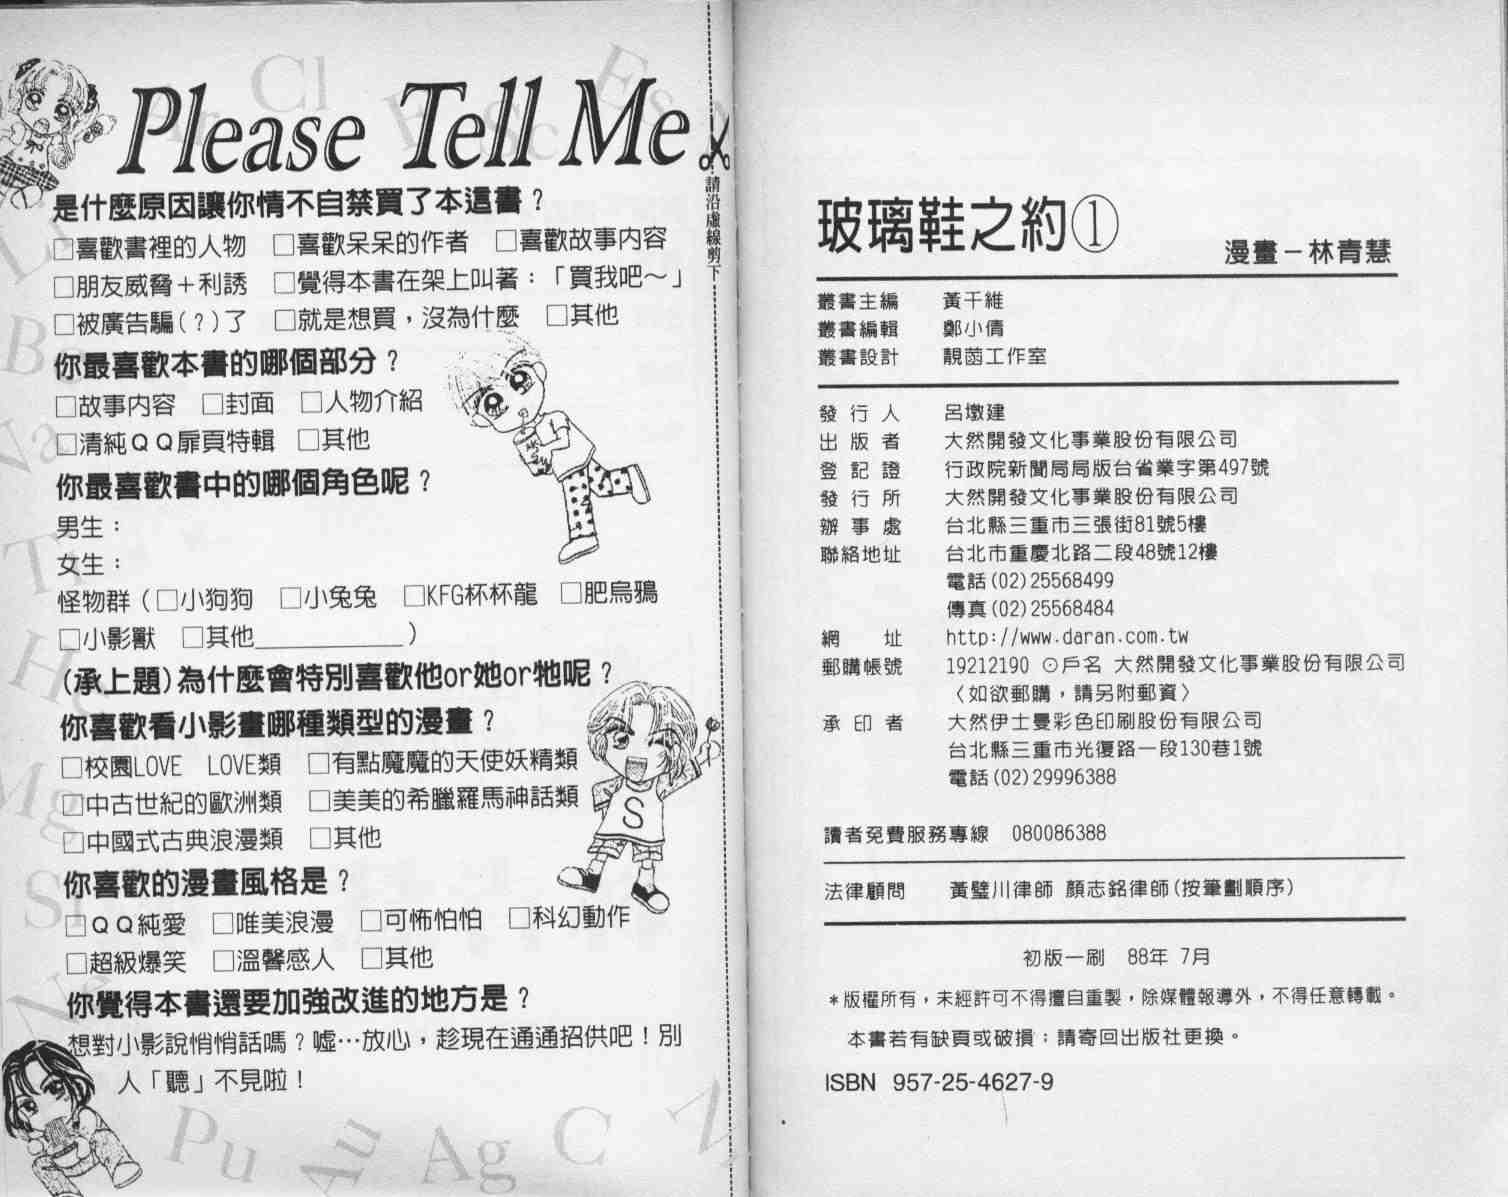 Please Tell Me
請沿虛線剪下
是什麼原因讓你情不自禁買了本這書？
□喜歡書裡的人物　□喜歡呆呆的作者　□喜歡故事內容
□朋友威脅＋利誘　□覺得本書在架上叫著：「買我吧～」
□被廣告騙(？)了　□就是想買，沒為什麼　□其他
你最喜歡本書的哪個部分？
□故事內容　□封面　□人物介紹
□清純ＱＱ扉頁特輯　□其他
你最喜歡書中的哪個角色呢？
男生：
女生：
怪物群（□小狗狗　□小兔兔　□KFG杯杯龍　□肥烏鴉
□小影獸　□其他____________）
(承上題)為什麼會特別喜歡他or她or牠呢？
你喜歡看小影畫哪種類型的漫畫？
□校園LOVE　LOVE類　□有點魔魔的天使妖精類
□中古世紀的歐洲類　□美美的希臘羅馬神話類
□中國式古典浪漫類　□其他
你喜歡的漫畫風格是？
□ＱＱ純愛　□唯美浪漫　□可怖怕怕　□科幻動作
□超級爆笑　□溫馨感人　□其他
你覺得本書還要加強改進的地方是？
想對小影說悄悄話嗎？噓…放心，趁現在通通招供吧！別
人「聽」不見啦！
S
Cl
Es
Sc
Li
Ba
Na
Ti
H
Mg
Si
Ne
Pu
Au
Ag
C
玻璃鞋之約①
漫畫－林青慧
叢書主編　黃千維
叢書編輯　鄭小倩
叢書設計　靚菡工作室
發 行 人　呂墩建
出 版 者　大然開發文化事業股份有限公司
登 記 證　行政院新聞局局版台省業字第497號
發 行 所　大然開發文化事業股份有限公司
辦 事 處　台北縣三重市三張街81號5樓
聯絡地址　台北市重慶北路二段48號12樓
電話(02)25568499
傳真(02)25568484
網　　址　http://www.daran.com.tw
郵購帳號　19212190 ⊙戶名 大然開發文化事業股份有限公司
〈如欲郵購，請另附郵資〉
承 印 者　大然伊士曼彩色印刷股份有限公司
台北縣三重市光復路一段130巷1號
電話(02)29996388
讀者免費服務專線　080086388
法律顧問　黃璧川律師 顏志銘律師(按筆劃順序)
初版一刷　88年 7月
＊版權所有，未經許可不得擅自重製，除媒體報導外，不得任意轉載。
本書若有缺頁或破損：請寄回出版社更換。
ISBN 957-25-4627-9